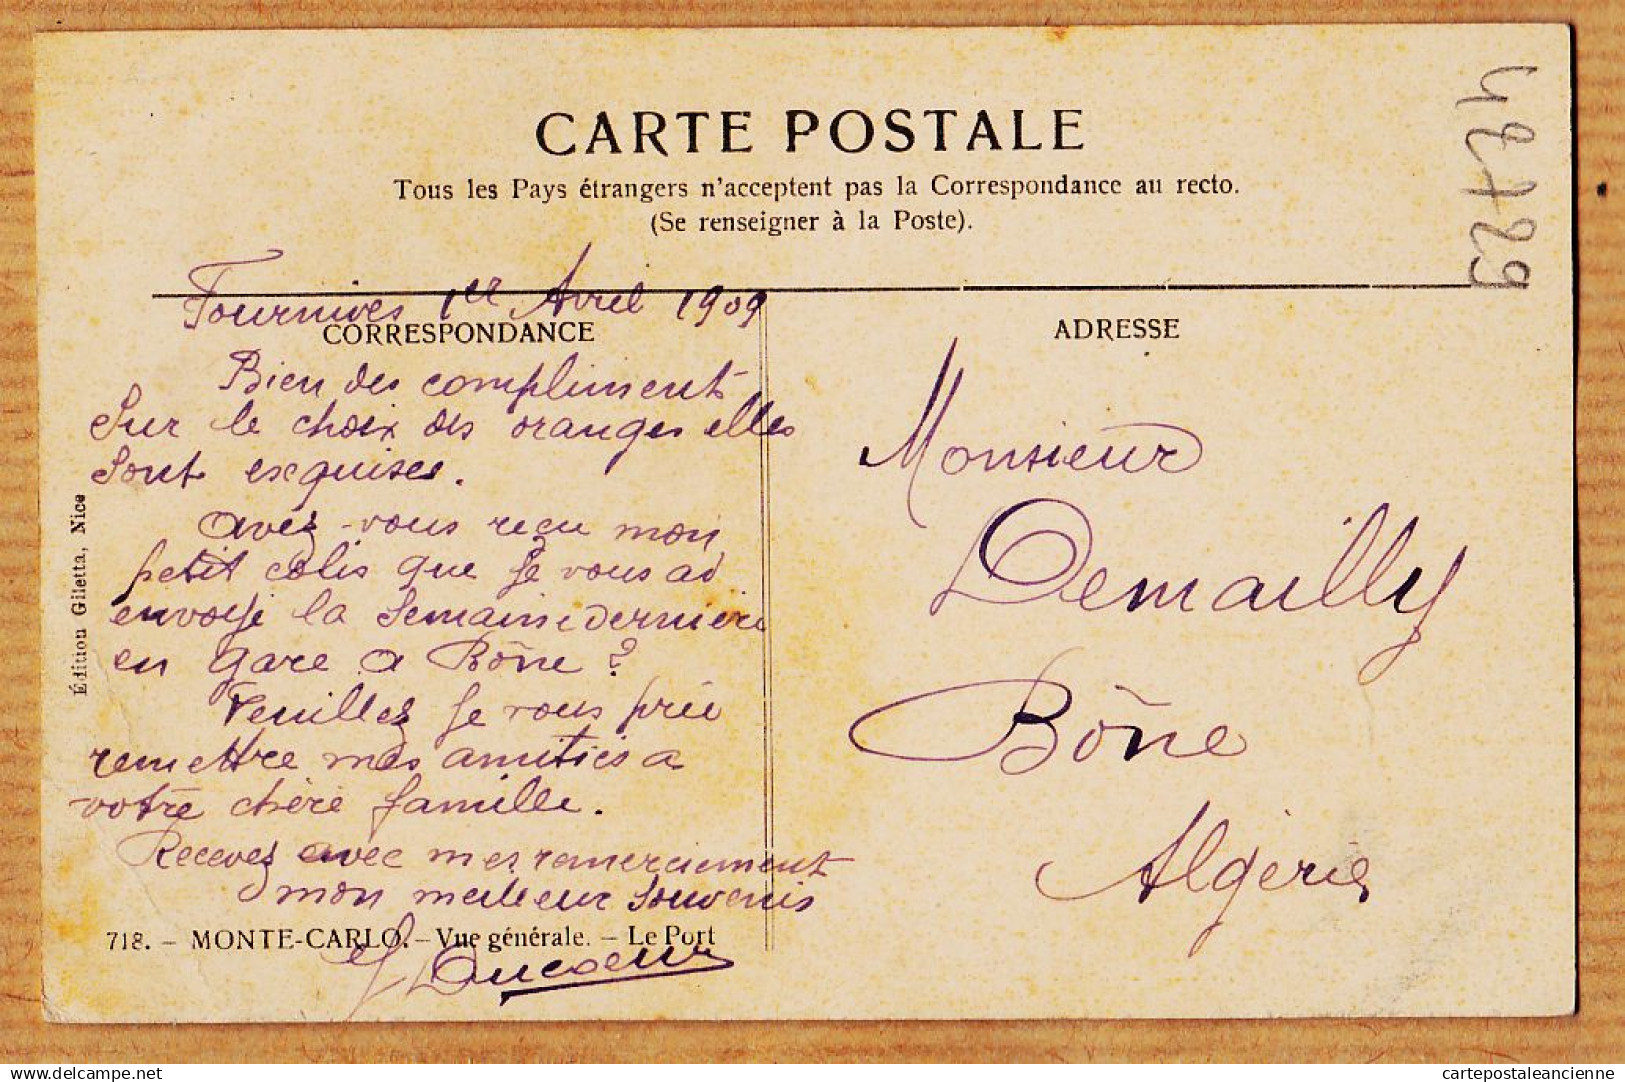 CARTE POSTALE
Tous les Pays étrangers n'acceptent pas la Correspondance au recto.
(Se renseigner à la Poste).
42729
Fournives 1er Avril 1909
CORRESPONDANCE
Bien des compliment
Sur le choix des oranges elles
Sont exquises.
avez-vous reçu mon
petit colis que Je vous ai
envoyé la Semaine dernière
en gare a Bône ?
Veuillez Je vous prie
remettre mes amitiés a
votre chère famille.
Recevez avec mes remerciement
mon meilleur Souvenir
Édition Giletta, Nice
718. – MONTE-CARLO. – Vue générale. – Le Port
ADRESSE
Monsieur
Demailly
Bône
Algérie
cartepostaleancienne
delcampe.net
cartepostaleancienne